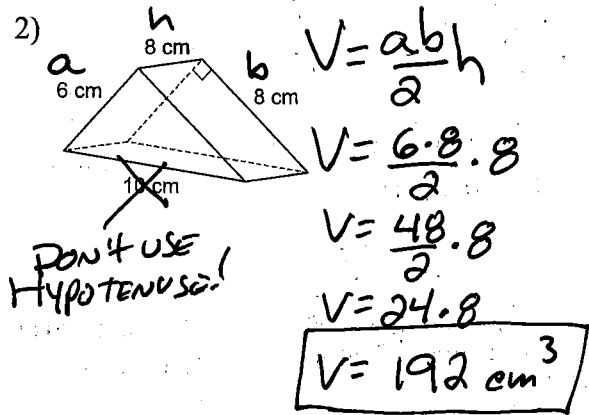 2)
h
8 cm
a
6 cm
b
8 cm
10 cm
DON'T USE
HYPOTENUSE!
V = ab/2 h
V = 6·8/2 · 8
V = 48/2 · 8
V = 24·8
V = 192 cm³